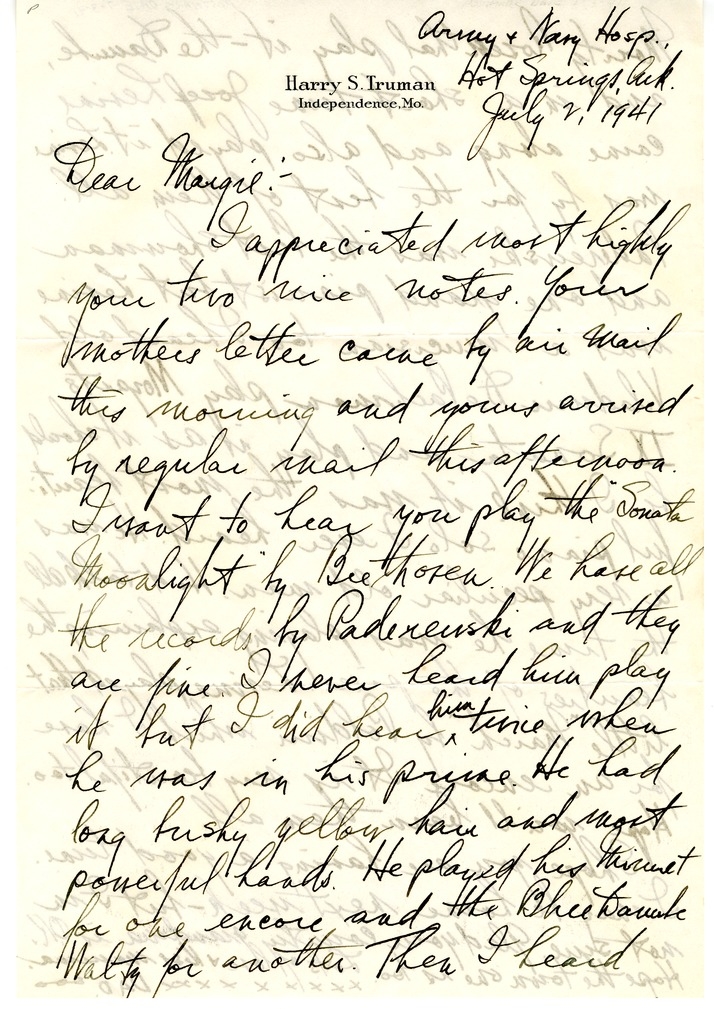 Army & Navy Hosp.,
Hot Springs, Ark.
July 2, 1941
Harry S. Truman
Independence, Mo.
Dear Margie:-
I appreciated most highly
your two nice notes. Your
mothers letter came by air mail
this morning and yours arrived
by regular mail this afternoon.
I want to hear you play the "Sonata
Moonlight" by Beethoven. We have all
the records by Paderewski and they
are fine. I never heard him play
it but I did hear him twice when
he was in his prime. He had
long bushy yellow hair and most
powerful hands. He played his Minuet
for one encore and the Blue Danube
Waltz for another. Then I heard